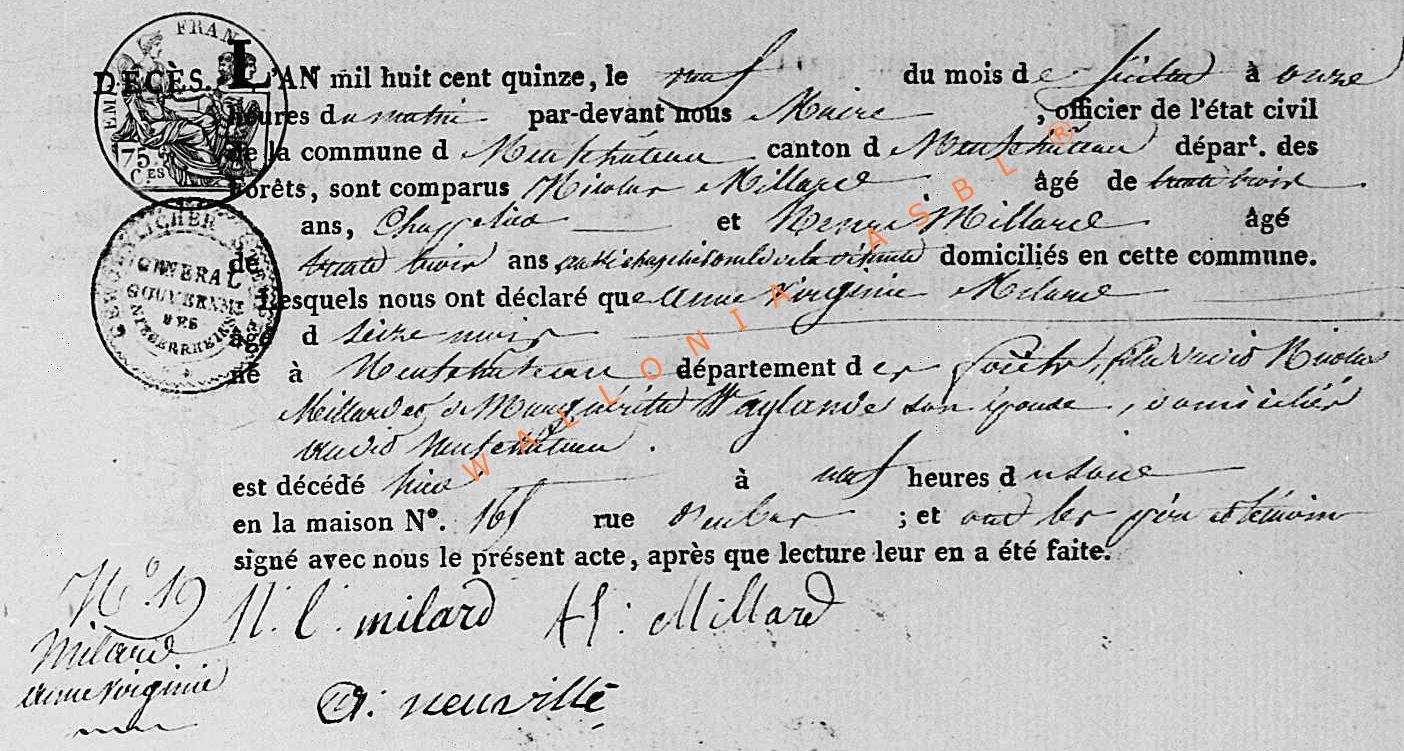 FRAN
EM
75.
C.ES
DÉCÈS. L'AN mil huit cent quinze, le neuf du mois de juillet à onze
heures du matin par-devant nous Maire , officier de l'état civil
de la commune d Neufchâteau canton d Neufchâteau dépar.t des
Forêts, sont comparus Nicolas Millard , âgé de trente trois
ans, Chappelier et Henri Millard âgé
de trente trois ans aussi chapelier oncle de la défunte domiciliés en cette commune.
Lesquels nous ont déclaré que anne Virginie Milard
âgé d seize mois
né à Neufchateau département des forêts, fille dudit Nicolas
Millard et de Marguérite Waylande son épouse, domiciliés
audit Neufchateau.
est décédé hier à neuf heures du soir
en la maison N°. 165 rue ; et ont les père et témoin
signé avec nous le présent acte, après que lecture leur en a été faite.
GENERAL
GOUVERNMT
DES
NIEDERRHEINS
N.° 19
Milard
anne Virginie
N. l. milard H: Millard
neuville
WALLONIA ASBL ®